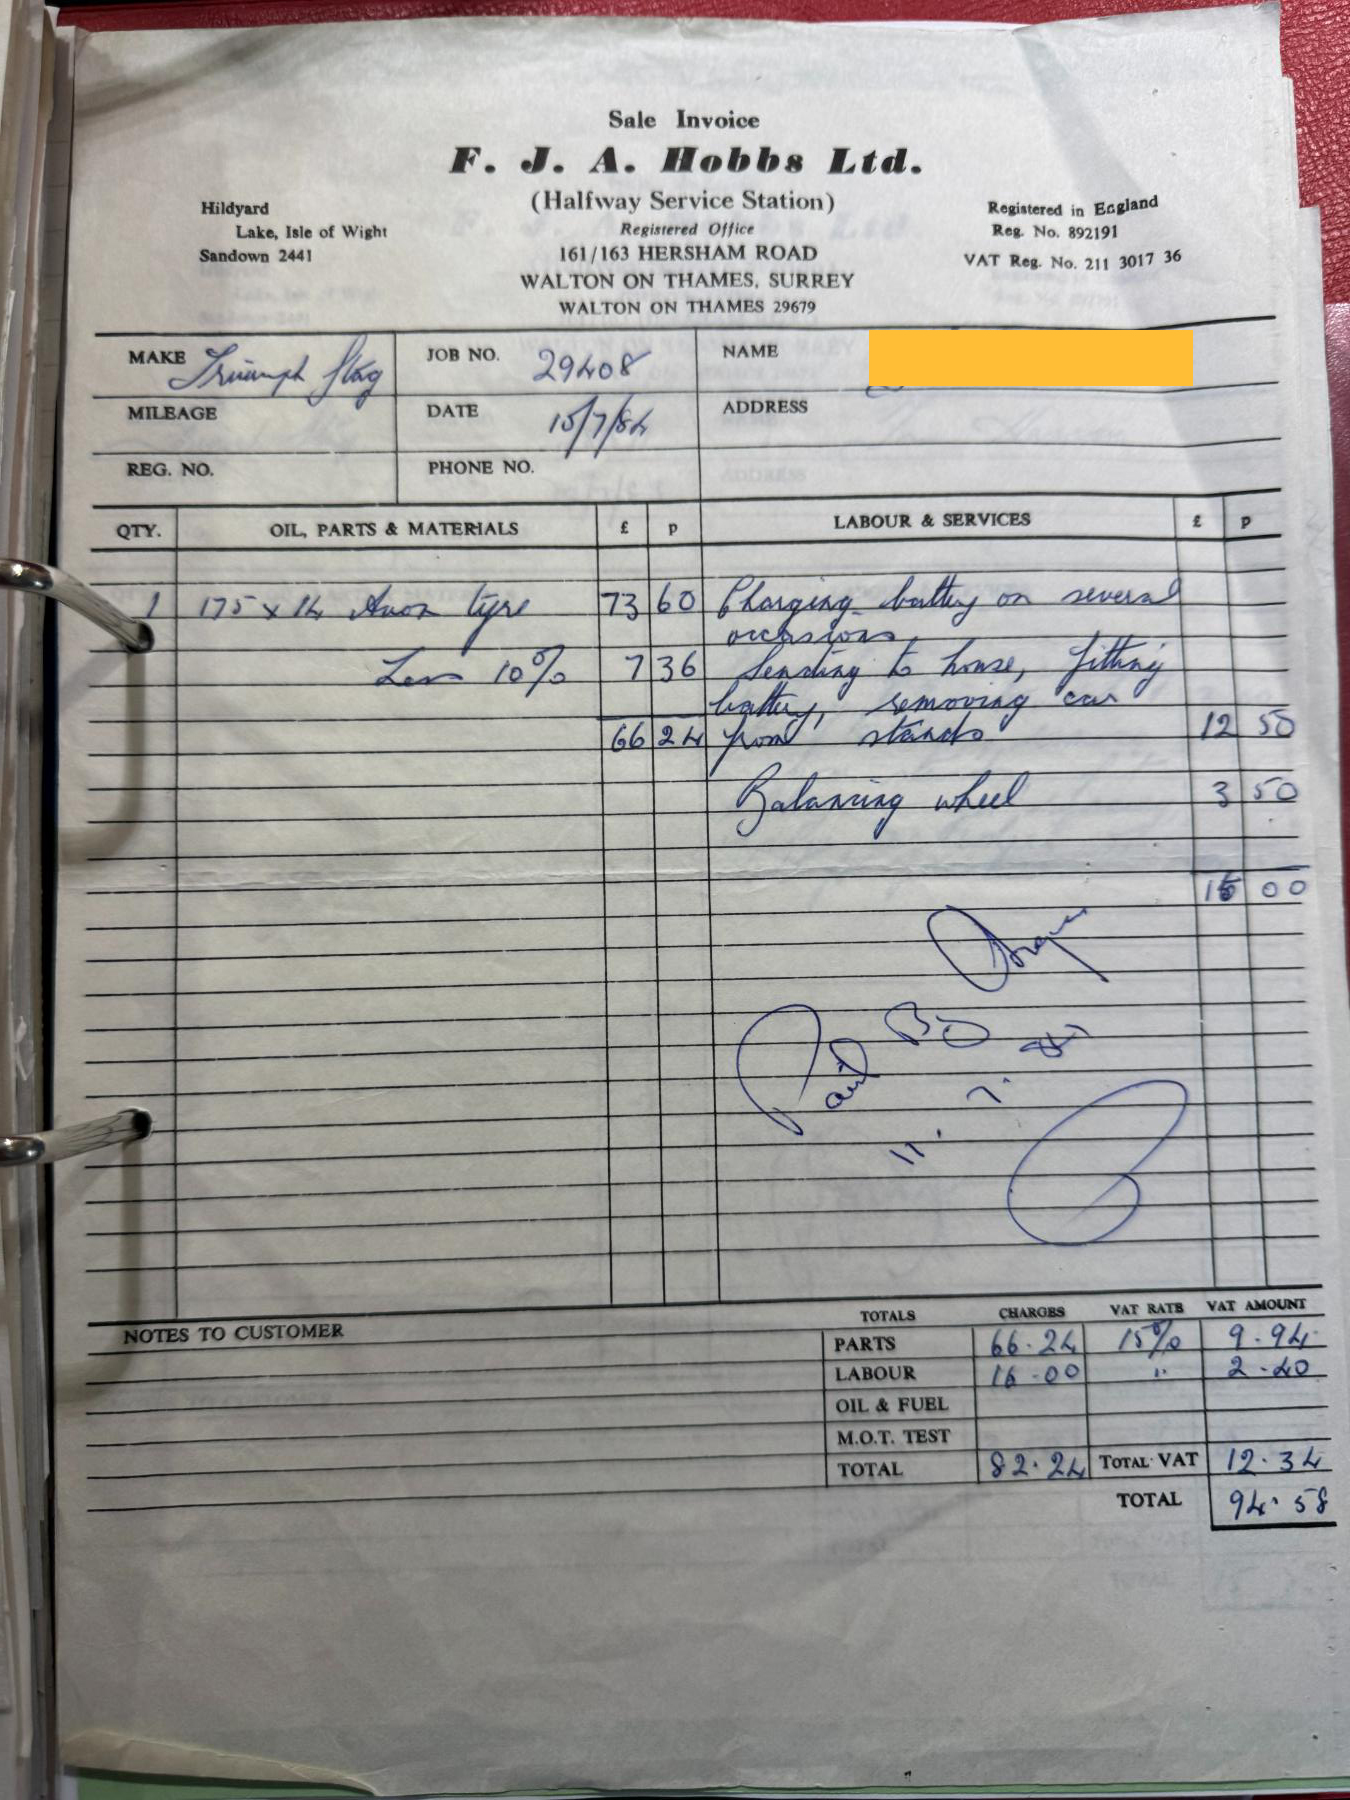 Sale Invoice
F. J. A. Hobbs Ltd.
(Halfway Service Station)
Registered Office
161/163 HERSHAM ROAD
WALTON ON THAMES, SURREY
WALTON ON THAMES 29679
Hildyard
Lake, Isle of Wight
Sandown 2441
Registered in England
Reg. No. 892191
VAT Reg. No. 211 3017 36
MAKE Triumph Stag JOB NO. 29408 NAME
MILEAGE DATE 15/7/84 ADDRESS
REG. NO. PHONE NO.
QTY. OIL, PARTS & MATERIALS £ p LABOUR & SERVICES £ p
1 175 x 14 Avon tyre 73 60 Charging battery on several
occasions,
Less 10% 7 36 Sending to house, fitting
battery, removing car
66 24 from stands 12 50
Balancing wheel 3 50
16 00
Paid By Cheque
11. 7. 84
NOTES TO CUSTOMER
TOTALS CHARGES VAT RATE VAT AMOUNT
PARTS 66.24 15% 9.94
LABOUR 16.00 " 2.40
OIL & FUEL
M.O.T. TEST
TOTAL 82.24 TOTAL VAT 12.34
TOTAL 94.58